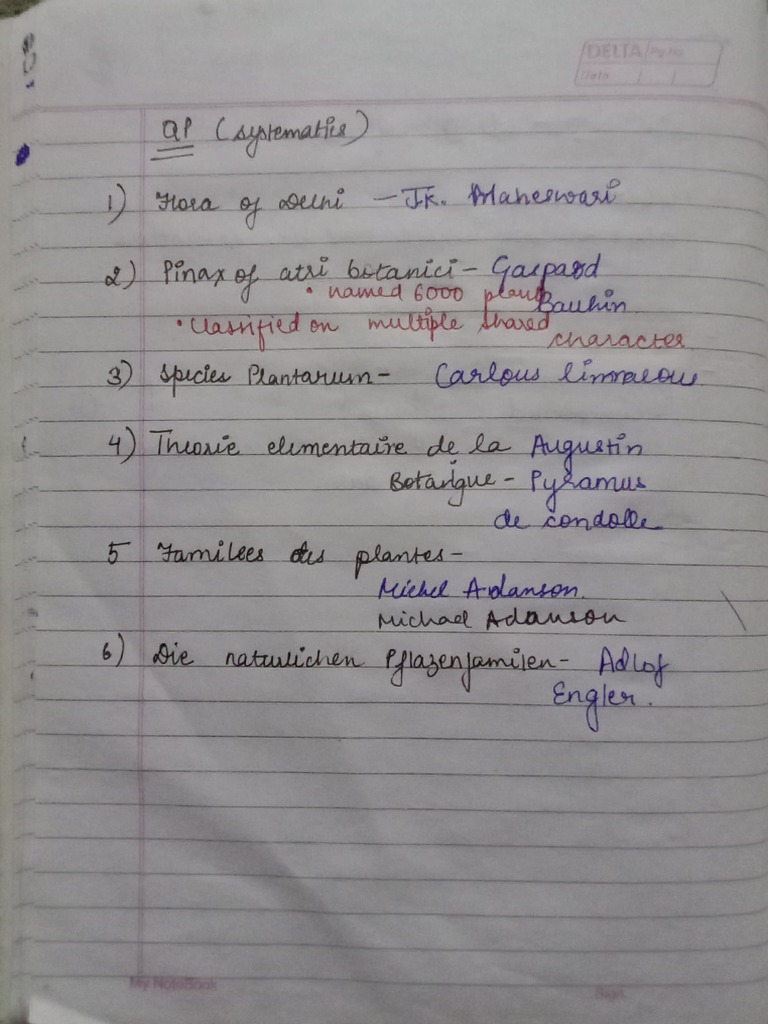 DELTA Pg No.
Date
QP (systematics)
1) Flora of Delhi - J.K. Maheswari
2) Pinax of atri botanici - Gaspard
• named 6000 plant Bauhin
• classified on multiple shared
character
3) Species Plantarum - Carlous linnaeous
4) Theorie elementaire de la Augustin
Botanique - Pyramus
de condolle
5 Familees des plantes -
Michel Adanson.
Michael Adanson
6) Die naturlichen Pflazenfamilen - Adlof
Engler.
My NoteBook
Sign.